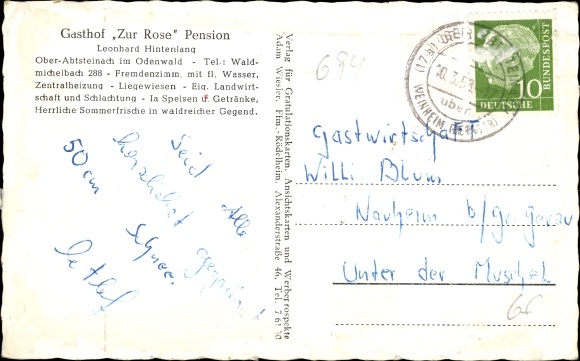 Gasthof „Zur Rose" Pension
Leonhard Hintenlang
Ober-Abtsteinach im Odenwald - Tel.: Wald-
michelbach 288 - Fremdenzimm. mit fl. Wasser,
Zentralheizung - Liegewiesen - Eig. Landwirt-
schaft und Schlachtung - Ia Speisen u. Getränke,
Herrliche Sommerfrische in waldreicher Gegend.
Seid Alle
herzlichst gegrüsst
50 cm Schnee.
Detlef
Verlag für Gratulationskarten, Ansichtskarten und Werbeprospekte
Adam Wiesler, Ffm.-Rödelheim, Alexanderstraße 46, Tel. 7 61 30
694
(17a)
über
WEINHEIM (BERGSTR)
DEUTSCHE
BUNDESPOST
10
Gastwirtschaft
Willi Blum
Nauheim b/Gr. Gerau
Unter der Muschel